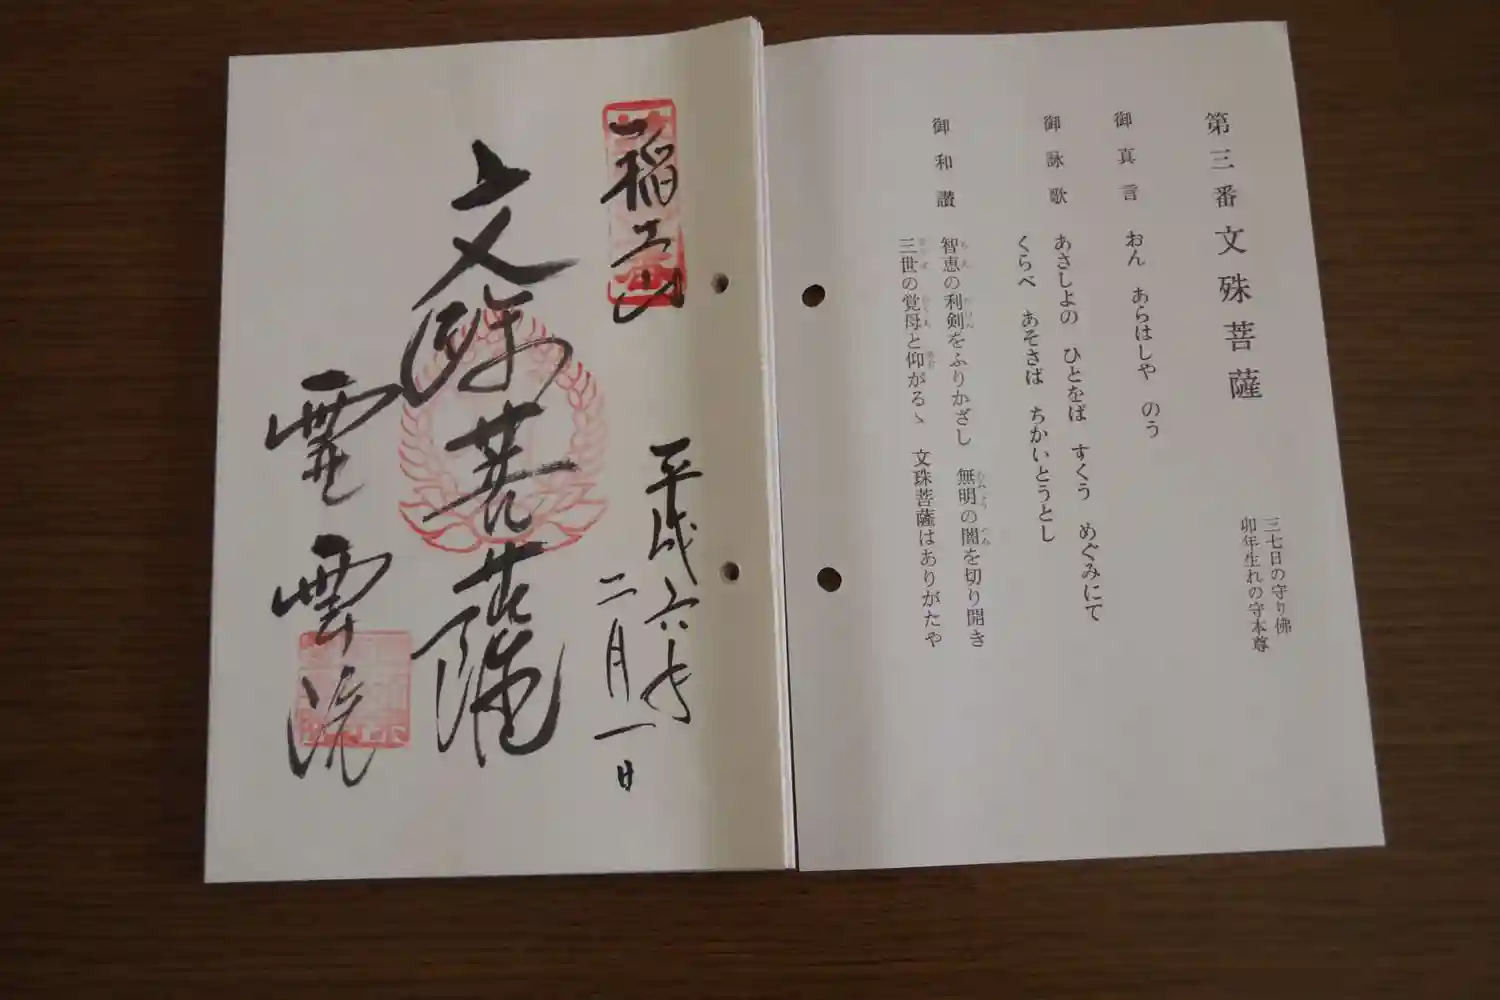 第三番 文殊菩薩
三七日の守り佛
卯年生れの守本尊
御真言 おん あらはしや のう
御詠歌 あさしよの ひとをば すくう めぐみにて
くらべ あそさば ちかいとうとし
御和讃 智恵の利剣をふりかざし 無明の闇を切り開き
三世の覚母と仰がるヽ 文珠菩薩はありがたや
平成六年
二月一日
文殊菩薩